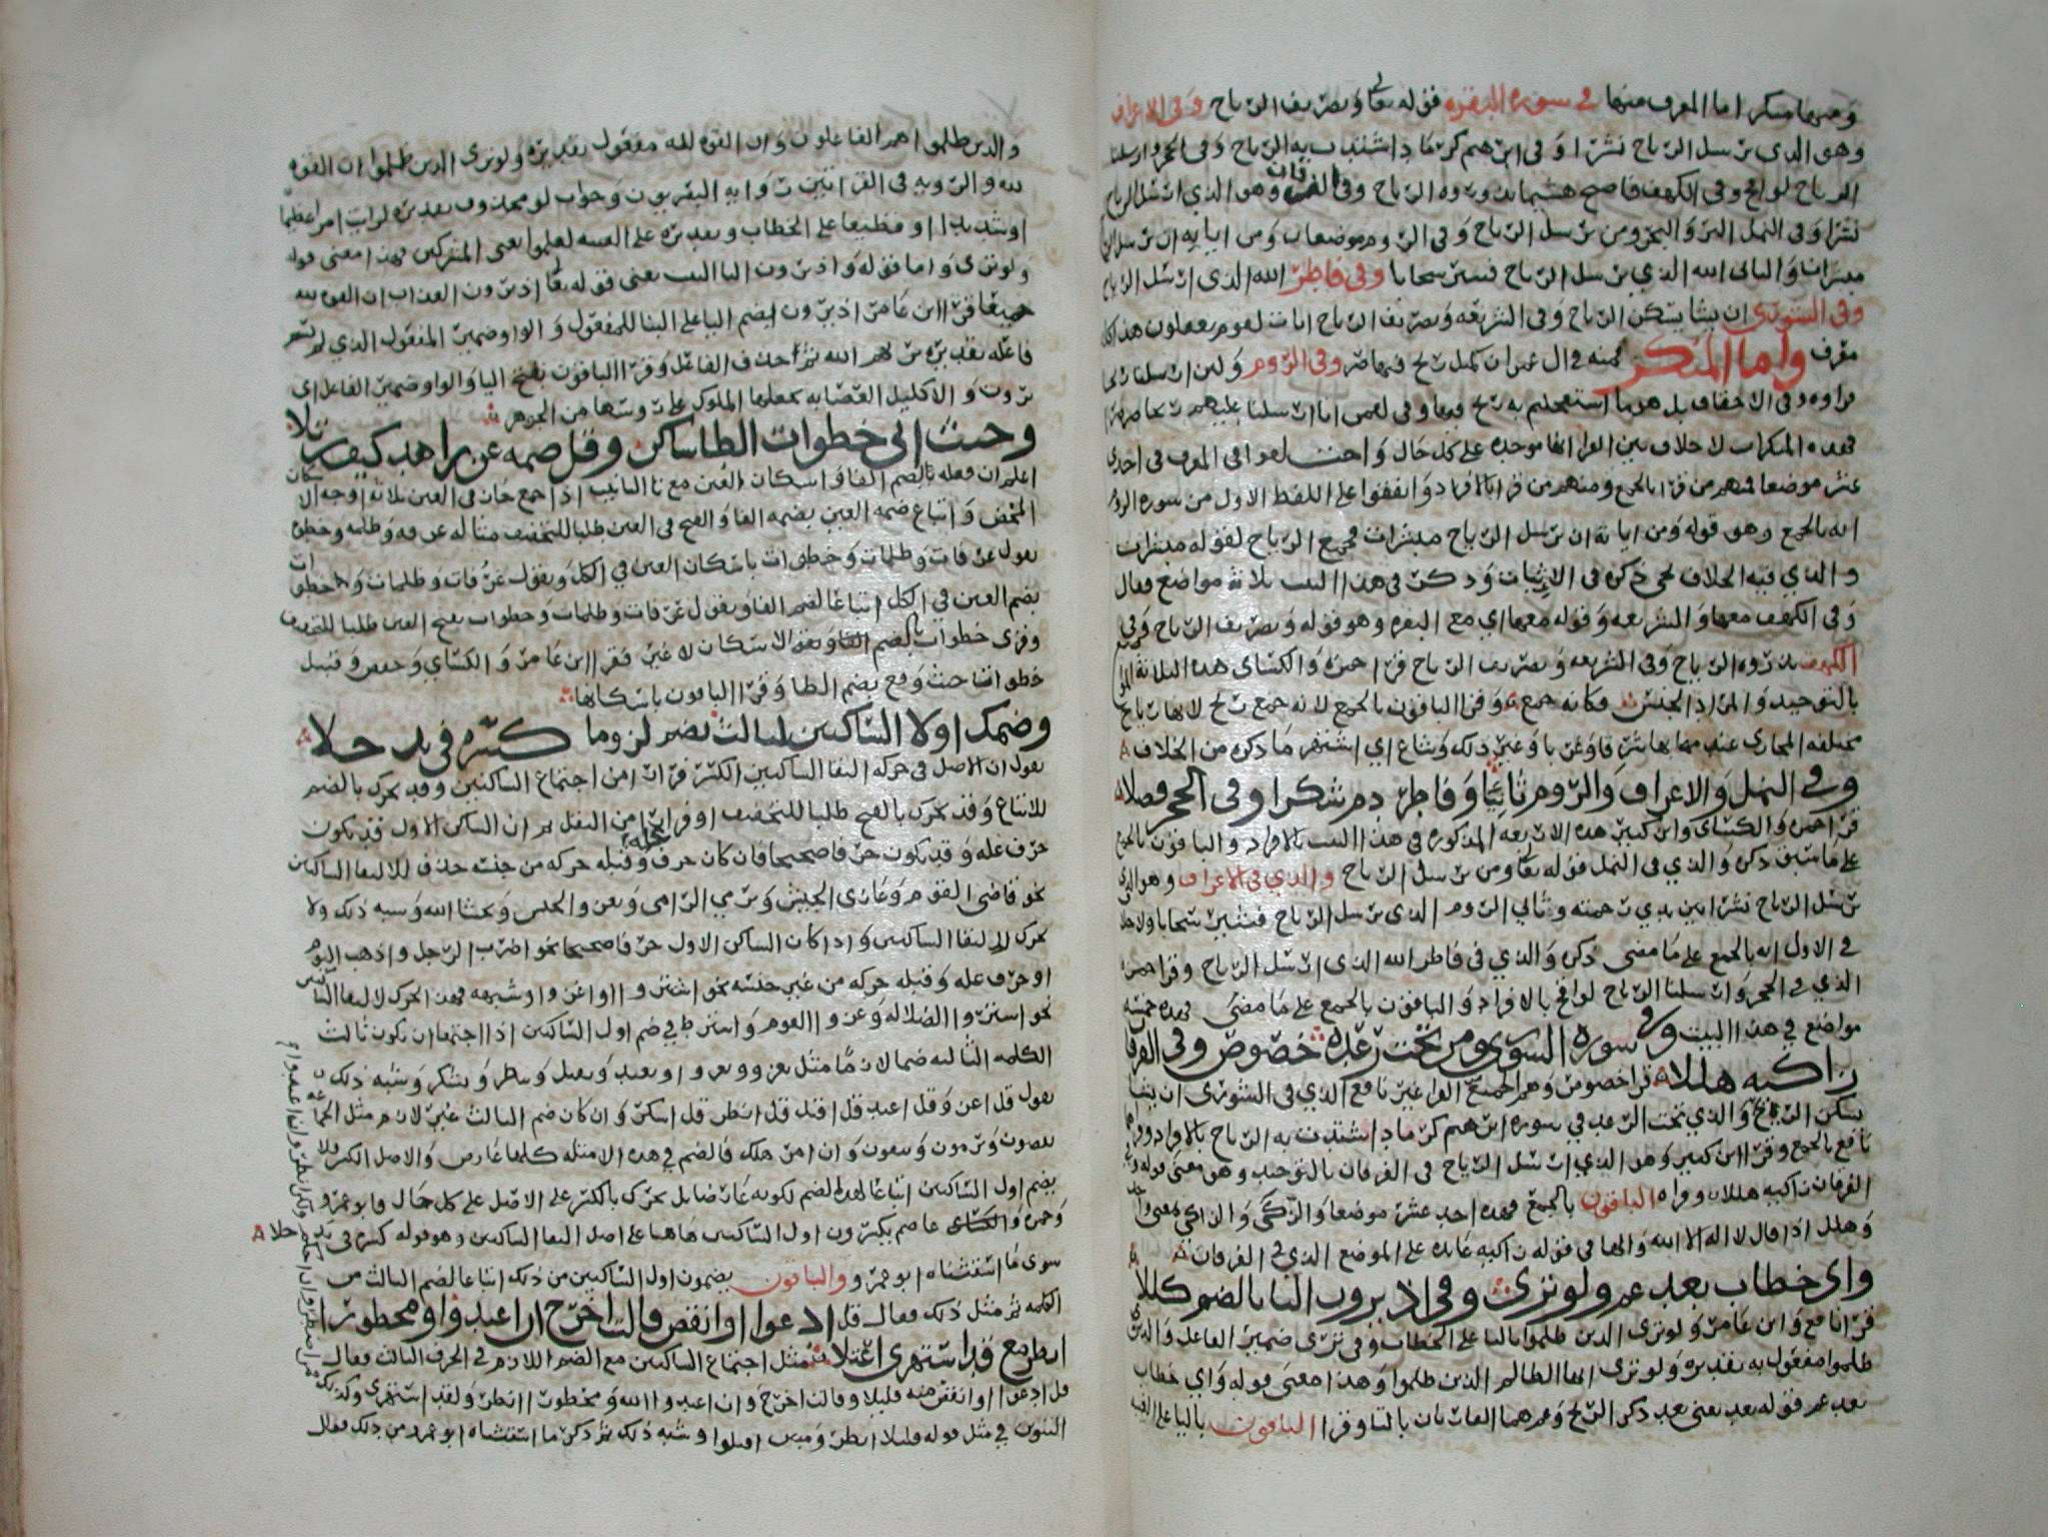 ومنها منكر اما المعرف منها في سورة البقره فقوله تعالى وتصريف الرياح وفي الاعراف
وهو الذي يرسل الرياح نشرا وفي ابرهيم كرماد اشتدت به الرياح وفي الحجر وارسلنا
الرياح لواقح وفي الكهف فاصبح هشيما تذروه الرياح وفي الفرقان وهو الذي ارسل الرياح
نشرا وفي النمل البر والبحر ومن يرسل الرياح وفي الروم موضعان ومن اياته ان يرسل الرياح
مبشرات والثاني الله الذي يرسل الرياح فتثير سحابا وفي فاطر الله الذي ارسل الرياح
وفي الشورى ان يشا يسكن الرياح وفي الشريعه وتصريف الرياح ايات لقوم يعقلون هذا كله
معرف واما المنكر فمنه في ال عمران كمثل ريح فيها صر وفي الروم ولين ارسلنا ريحا
فراوه وفي الاحقاف بل هو ما استعجلتم به ريح فيها وفي القمر انا ارسلنا عليهم ريحا صرصرا
فهذه المنكرات لا خلاف بين القرا انها موحده على كل حال واختلفوا في المعرف في احدى
عشر موضعا فمنهم من قرا بالجمع ومنهم من قرا بالافراد واتفقوا على اللفظ الاول من سورة الروم
انه بالجمع وهو قوله ومن اياته ان يرسل الرياح مبشرات فجمع الرياح لقوله مبشرات
والذي فيه الخلاف يجي ذكره في الابيات وذكر في هذا البيت ثلاثة مواضع فقال
وفي الكهف معها والشريعه وقوله معها اي مع البقره وهو قوله وتصريف الرياح وفي
الكهف تذروه الرياح وفي الشريعه وتصريف الرياح قرا حمزه والكساي هذه الثلاثة
بالتوحيد والمراد الجنس فكانه جمع وقرا الباقون بالجمع لانه جمع ريح لانها رياح
مختلفه المجاري عند مهابها شرقا وغربا وغير ذلك وشاع اي اشتهر ما ذكره من الخلاف
وفي النمل والاعراف والروم ثانيا وفاطر دم شكرا وفي الحجر فصلا
قرا حمزه والكساي وابن كثير هذه الاربعه المذكوره في هذا البيت بالافراد والباقون بالجمع
على ما سبق ذكره والذي في النمل قوله تعالى ومن يرسل الرياح والذي في الاعراف وهو الذي
يرسل الرياح نشرا بين يدي رحمته وثاني الروم الذي يرسل الرياح فتثير سحابا ولا خلاف
في الاول انه بالجمع على ما مضى ذكره والذي في فاطر الله الذي ارسل الرياح وقرا حمزه
الذي في الحجر وارسلنا الرياح لواقح بالافراد والباقون بالجمع على ما مضى فهذه خمسه
مواضع في هذا البيت وفي سورة الشورى ومن تحت رعده خصوص وفي الفرقان
زاكيه هللا قرا خصوص وهم جميع القرا غير نافع الذي في الشورى ان يشا
يسكن الريح والذي تحت الرعد في سورة ابرهيم كرماد اشتدت به الرياح بالافراد وقراهما
نافع بالجمع وقرا ابن كثير وهو الذي ارسل الرياح في الفرقان بالتوحيد وهو معنى قوله وفي
الفرقان زاكيه هللا ورواه الباقون بالجمع فهذه احد عشر موضعا والزكي والزاكي بمعنى واحد
وهلل اذا قال لا اله الا الله والها في قوله زاكيه عايده على الموضع الذي في الفرقان
واي خطاب بعد عم ولو ترى وفي اذ يرون اليا بالضم كللا
قرا نافع وابن عامر ولو ترى الذين ظلموا بالتا على الخطاب وفي ترى ضمير الفاعل والذين
ظلموا مفعول به تقديره ولو ترى ايها الظالم الذين ظلموا وهذا معنى قوله واي خطاب
بعد عم فقوله بعد يعني بعد ذكر الريح وعم هما القاريان بالتا وقرا الباقون باليا على الغيب
والذين ظلموا هم الفاعلون وان القوه لله مفعول تقديره ولو ترى الذين ظلموا ان القوه
لله والرويه في القراتين راوايه البصريون وجواب لو محذوف تقديره لرايت امرا عظيما
او شديدا او فظيعا على الخطاب وتقديره على الغيبه لعلموا يعني المشركين فهذا معنى قوله
ولو ترى واما قوله واذ يرون اليا البيت يعني قوله تعالى اذ يرون العذاب ان القوه لله
جميعا قرا ابن عامر اذ يرون بضم اليا على البنا للمفعول والواو ضمير المفعول الذي لم يسم
فاعله تقديره يريهم الله ثم حذف الفاعل وقرا الباقون بفتح اليا والواو ضمير الفاعل اي
يرون والاكليل العصابه تجعلها الملوك على روسها من الجوهر
وحيث اتى خطوات الطا ساكن وقل ضمه عن زاهد كيف رتلا
اعلم ان فعله بالضم الفا واسكان العين مع تا التانيث اذا جمع جاز في العين ثلاثة اوجه الاسكان
المحض واتباع ضمه العين بضمه الفا والفتح في العين طلبا للتخفيف مثاله غرفه وظلمه وخطوه
تقول غرفات وظلمات وخطوات باسكان العين في الكل وتقول غرفات وظلمات وخطوات
بضم العين في الكل اتباعا لضم الفا وتقول غرفات وظلمات وخطوات بفتح العين طلبا للتخفيف
وقرى خطوات بالضم وبالاسكان لا غير فقرا ابن عامر والكساي وحفص وقنبل
خطوات حيث وقع بضم الطا وقرا الباقون باسكانها
وضمك اولا الساكنين لثالث يضم لزوما كسره في ند حلا
يقول ان الاصل في حركه التقا الساكنين الكسر فرارا من اجتماع الساكنين وقد يحرك بالضم
للاتباع وقد يحرك بالفتح طلبا للتخفيف او فرارا من الثقل ثم ان الساكن الاول قد يكون
حرف عله وقد يكون حرفا صحيحا فان كان حرف عله وقبله حركه من جنسه حذف لالتقا الساكنين
نحو قاضي القوم وغازى الجيش ويرمي الرامي ويغزو الجيش ويخشا الله وشبه ذلك ولا
يحرك لالتقا الساكنين واذا كان الساكن الاول حرفا صحيحا نحو اضرب الرجل واذهب اليوم
او حرف عله وقبله حركه من غير جنسه نحو اشتروا واغزوا وشبهه فهذا يحرك لالتقا الساكنين
نحو اشتروا الضلاله وعن والقوم واشترط في ضم اول الساكنين اذا اجتمعا ان يكون ثالث
الكلمه الثانيه ضما لازما مثل يغزو ويعبد ويقتل وينظر ويشكر وشبه ذلك
تقول قل اغز وقل اعبد قل اقتل قل انظر قل اسكن وان كان ضم الثالث غير لازم مثل
يقضون ويرمون ويبنون وان امرؤ هلك فالضم في هذه الامثله كلها عارض والاصل الكسر فلا
يضم اول الساكنين اتباعا لهذا الضم لكونه عارضا بل يحرك بالكسر على الاصل على كل حال فابو عمرو
وحمزه وعاصم يكسرون اول الساكنين هاهنا على اصل التقا الساكنين وهو قوله كسره في ند حلا
سوى ما استثناه ابو عمرو والباقون يضمون اول الساكنين من ذلك اتباعا لضم الثالث من
الكلمه ثم مثل ذلك فقال قل ادعوا او انقص قالت اخرج ان اعبدوا ومحظورا
انظر مع قد استهزي اعتلا مثل اجتماع الساكنين مع الضم اللازم في الحرف الثالث فقال
قل ادعوا او انقص منه قليلا وقالت اخرج وان اعبدوا الله ومحظورا انظر ولقد استهزي وكذلك
التنوين في مثل قوله فتيلا انظر ومبين اقتلوا وشبه ذلك ثم ذكر ما استثناه ابو عمرو من ذلك فقال